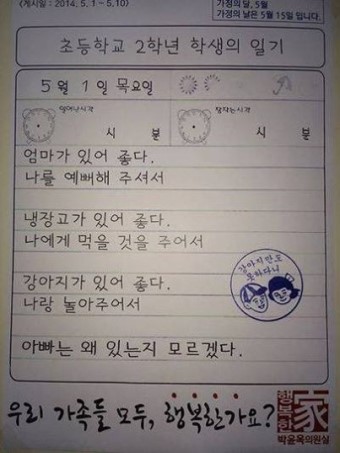 <게시일 : 2014. 5. 1 ~ 5.10>
가정의 달, 5월
가정의 날은 5월 15일 입니다.
초등학교 2학년 학생의 일기
5 월 1 일 목요일
일어난시각
시 분
잠자는시각
시 분
엄마가 있어 좋다.
나를 예뻐해 주셔서
냉장고가 있어 좋다.
나에게 먹을 것을 주어서
강아지가 있어 좋다.
나랑 놀아주어서
강아지만도
못하다니
아빠는 왜 있는지 모르겠다.
우리 가족들 모두, 행복한가요?
행복한 家
박윤옥의원실